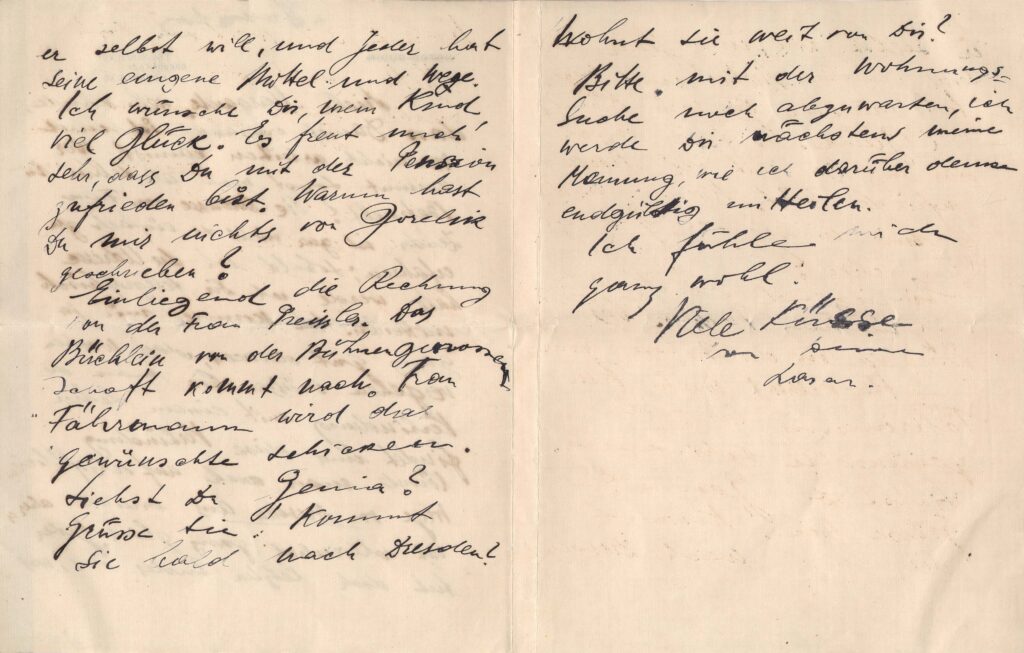 er selbst will, und Jeder hat
seine eingene Mittel und Wege.
Ich wünsche Dir, mein Kind,
viel Glück. Es freut mich
sehr, dass Du mit der Pension
zufrieden bist. Warum hast
Du mir nichts von Gorelik
geschrieben?
Einliegend die Rechnung
von der Frau Preissler. Das
Büchlein von der Bühnengenossen
schaft kommt nach. Frau
Fährmann wird das
gewünschte schicken.
Siehst Du Genia?
Grüsse sie! Kommt
sie bald nach Dresden?
Wohnt sie weit von Dir?
Bitte mit der Wohnungs-
suche noch abzuwarten, ich
werde Dir nächstens meine
Meinung, wie ich darüber denke
endgültig mitteilen.
Ich fühle mich
ganz wohl.
Viele Küsse
von
Lasar.